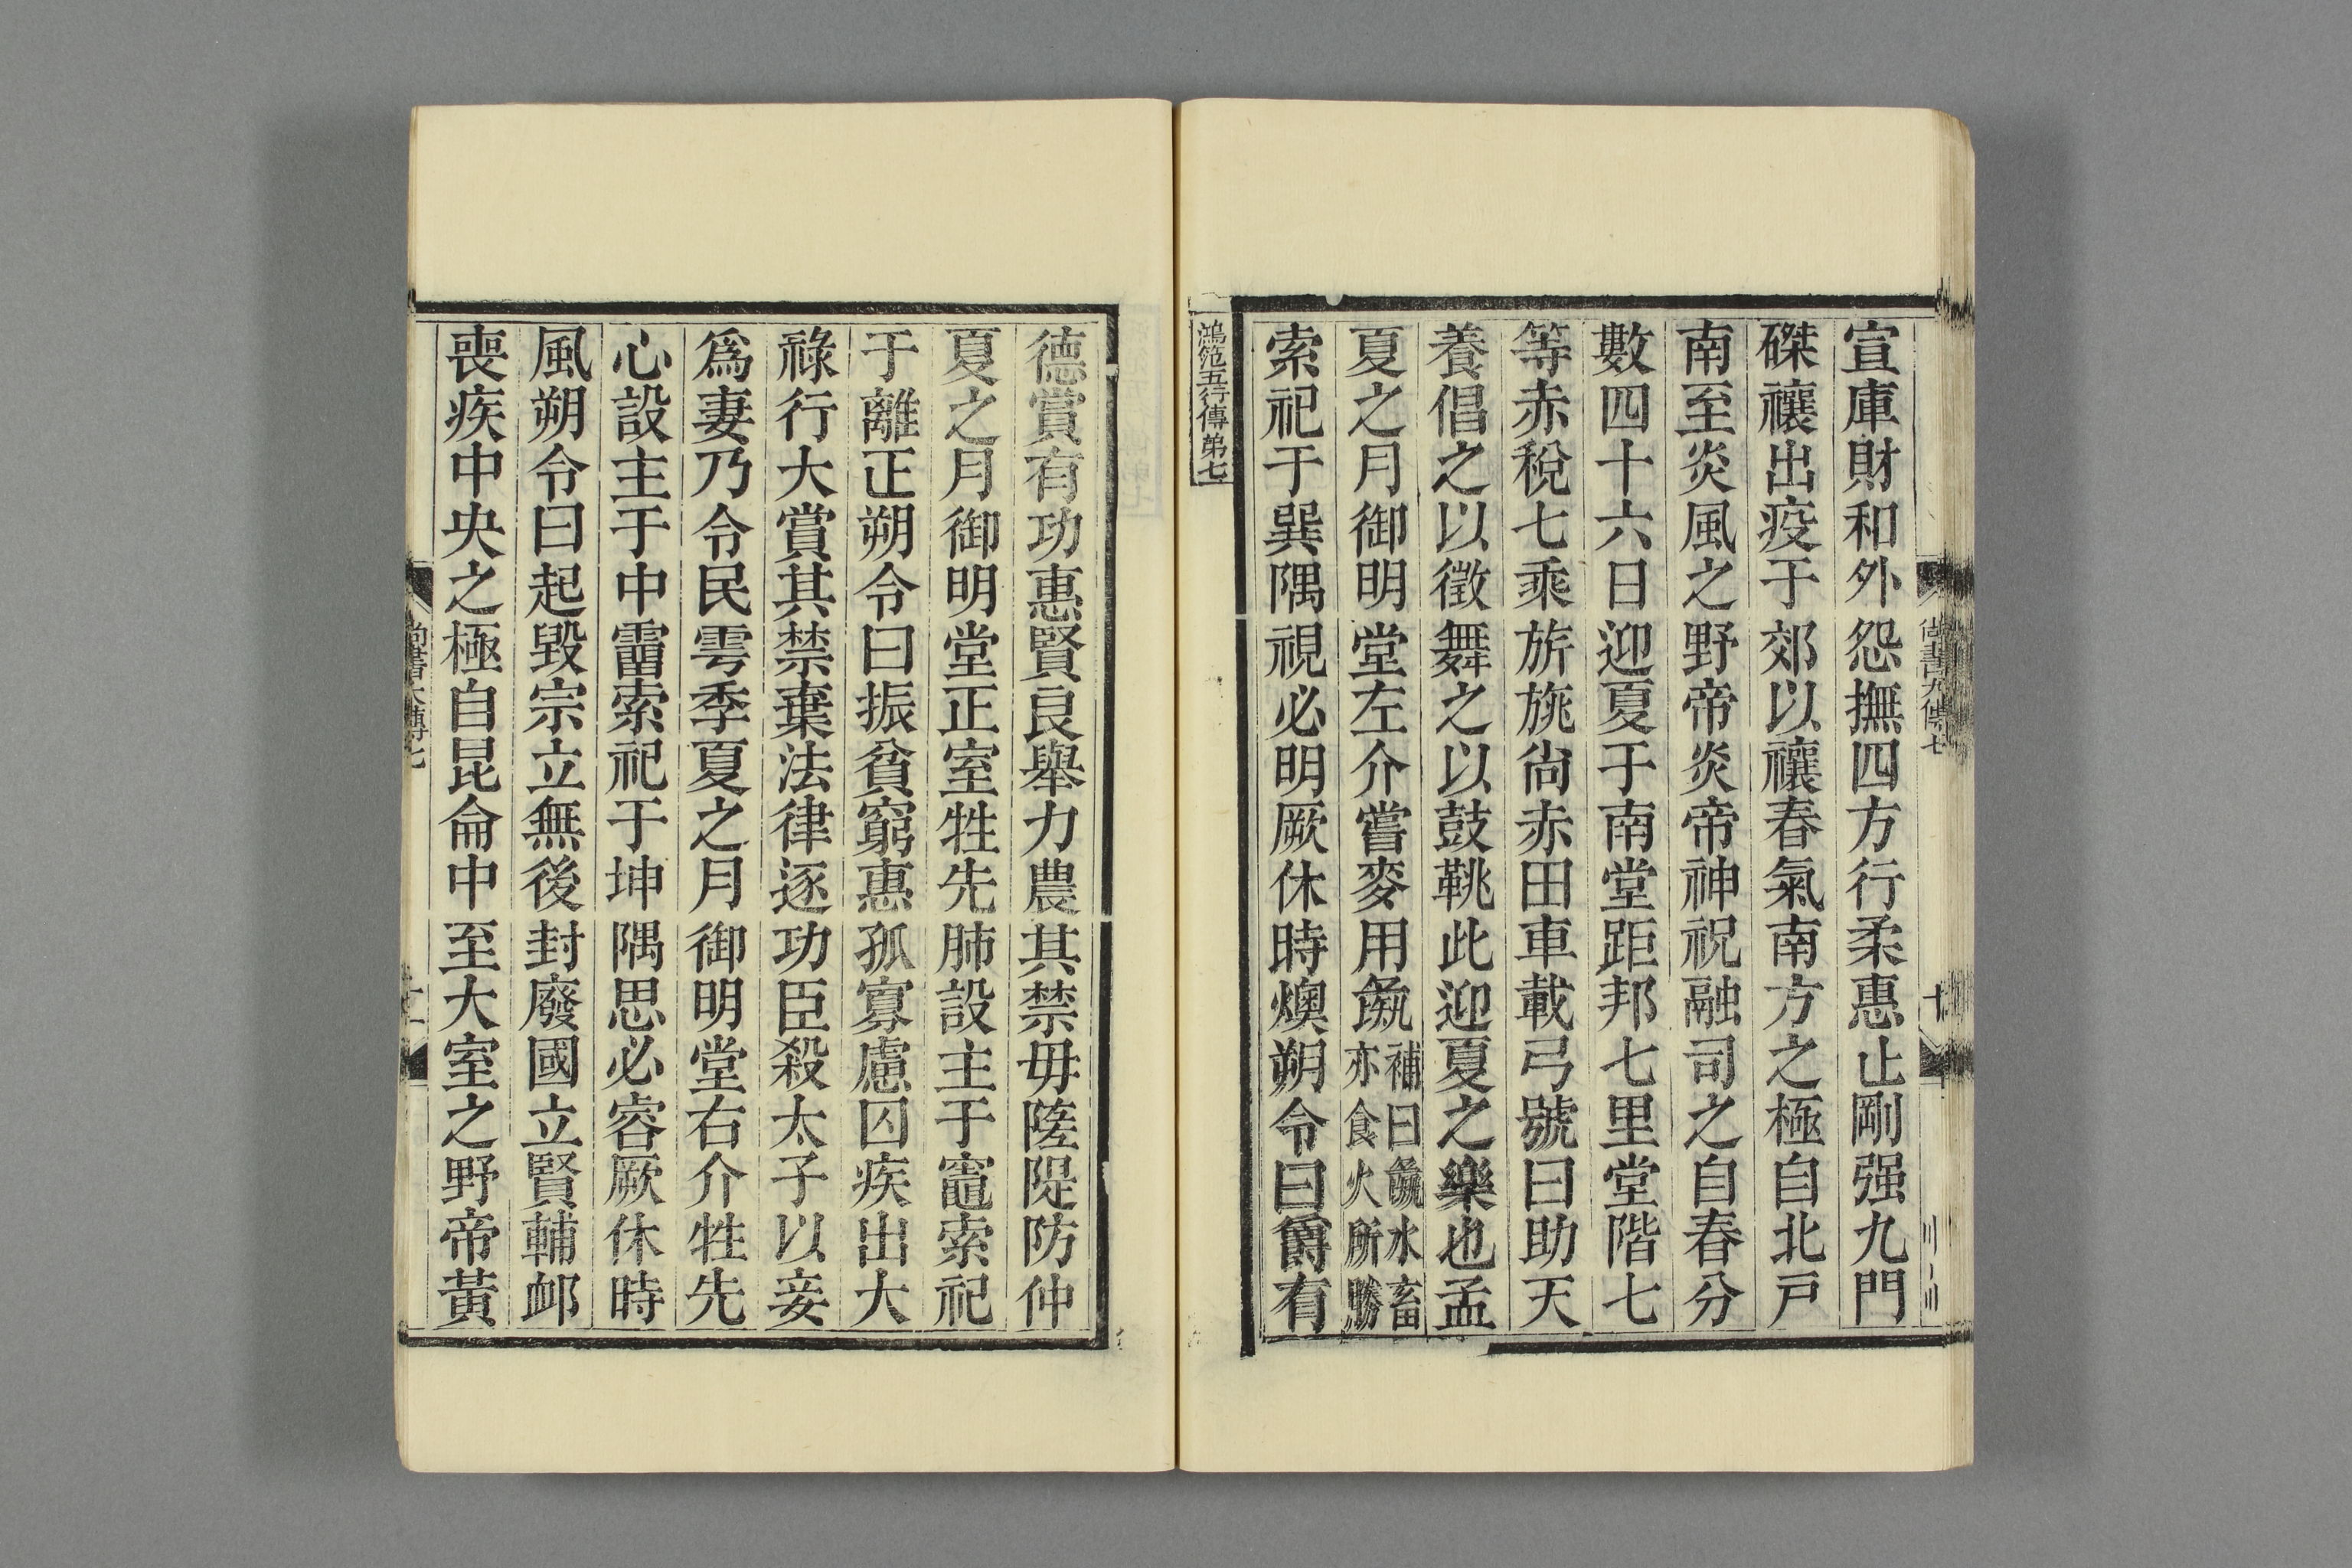 宣庫財和外怨撫四方行柔惠止剛强九門
磔禳出疫于郊以禳春氣南方之極自北戸
南至炎風之野帝炎帝神祝融司之自春分
數四十六日迎夏于南堂距邦七里堂階七
等赤稅七乘旂旐尙赤田車載弓號曰助天
養倡之以徵舞之以鼓鞉此迎夏之樂也孟
夏之月御明堂左介嘗麥用彘補曰彘水畜亦食火所勝
索祀于巽隅視必明厥休時燠朔令曰爵有
鴻范五行傳弟七
德賞有功惠賢良舉力農其禁毋隓隄防仲
夏之月御明堂正室牲先肺設主于竈索祀
于離正朔令曰振貧窮惠孤寡慮囚疾出大
祿行大賞其禁棄法律逐功臣殺太子以妾
爲妻乃令民雩季夏之月御明堂右介牲先
心設主于中霤索祀于坤隅思必睿厥休時
風朔令曰起毀宗立無後封廢國立賢輔卹
喪疾中央之極自昆侖中至大室之野帝黃
尙書大傳七